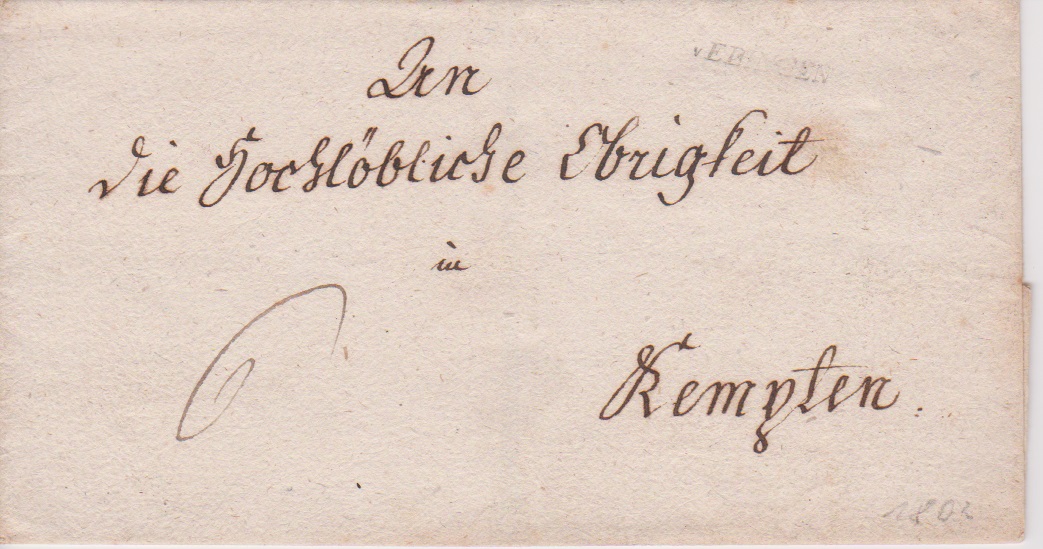 v EBINGEN
An
die Hochlöbliche Obrigkeit
in
6
Kempten.
1802